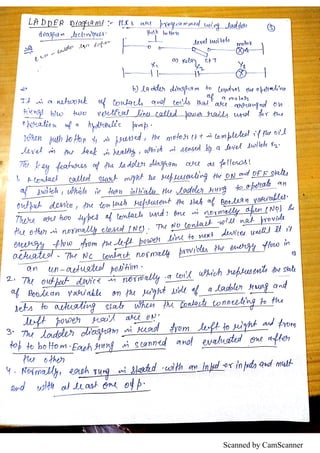 LADDER Diagrams :- PLCs are programmed using ladder
diagram techniques.
push button
level switch
motor
a) motor ckt
X1 X2
b) ladder diagram to control the operation
of a motor
It is a network of contacts and coils that are arranged on
b/w two vertical line called power rails used for the
operation of a hydraulic pump.
When push button X1 is pressed, the motor ckt is completed if the oil
level in the tank is healthy, which is sensed by a level switch X2.
The key features of the ladder diagram are as follows:
1. A contact called start might be representing the ON and OFF states
of switch, which in turn initiate the ladder rung to operate an
output device, the contact represent the state of Boolean variables.
There are two types of contact used: one is normally open (NO) &
the other is normally closed (NC). The NO contact will not provide
energy flow from the left power line to next devices until it is
actuated. The NC contact normally provides the energy flow in
an un-actuated position.
2. The output device is normally a coil which represents the state
of Boolean variable on the right side of a ladder rung and
sets to actuating state when the contacts connecting to the
left power rail are ON.
3. The ladder diagram is read from left to right and from
top to bottom. Each rung is scanned and evaluated one after
the other
4. Normally, each rung is started with an input or inputs and must
end with at least one o/p.
Scanned by CamScanner